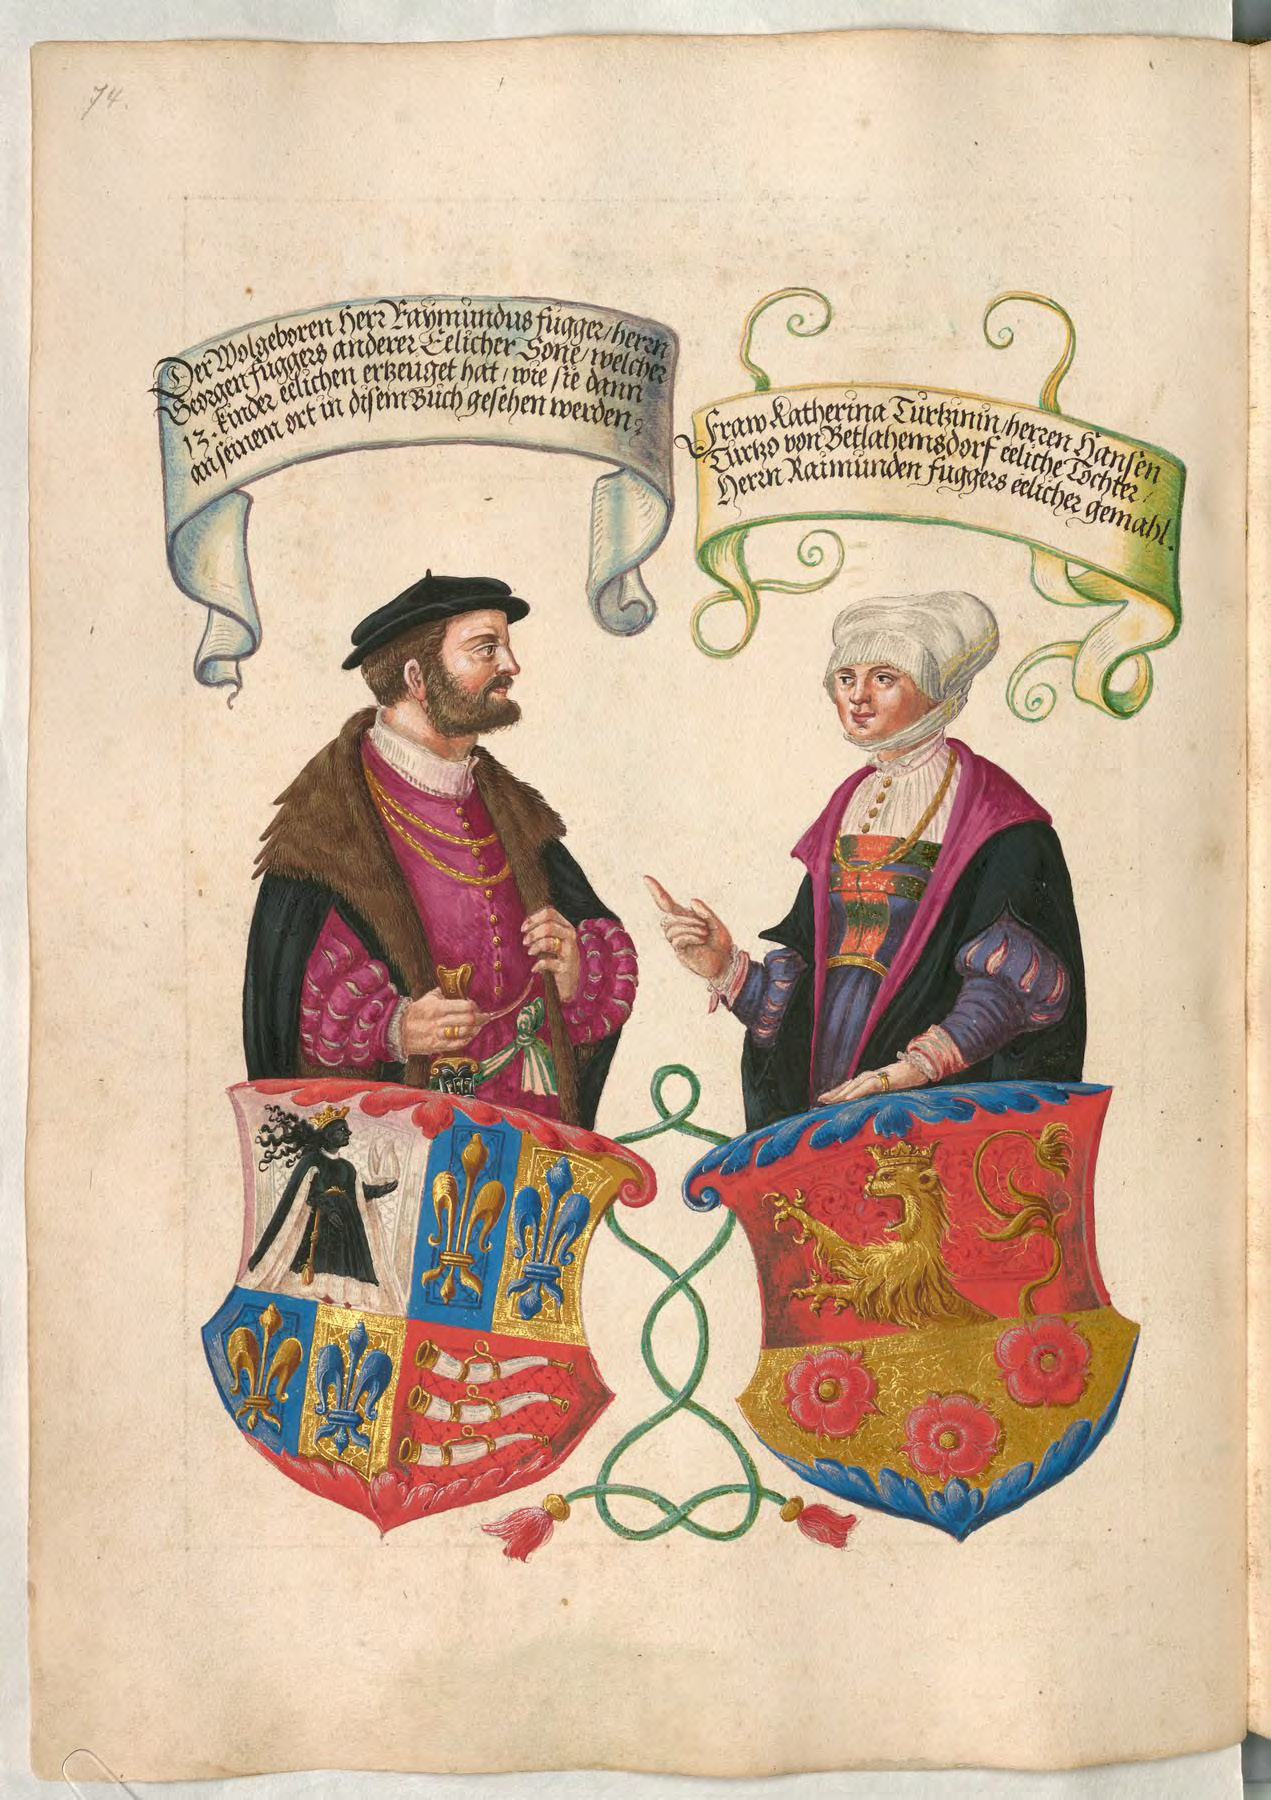 74.
Der Wolgeboren Herr Raÿmündüs függer / herrn
Georgen függers anderer Eelicher Sone / welcher
13. kinder eelichen erzeüget hat / wie sie dann
an seinem ort in disem Büch gesehen werden.
Fraw Katherina Türtzinin / herren Hansen
Türtzo von Betlahemsdorf eeliche Tochter /
Herrn Raimünden függers eelicher gemahl.